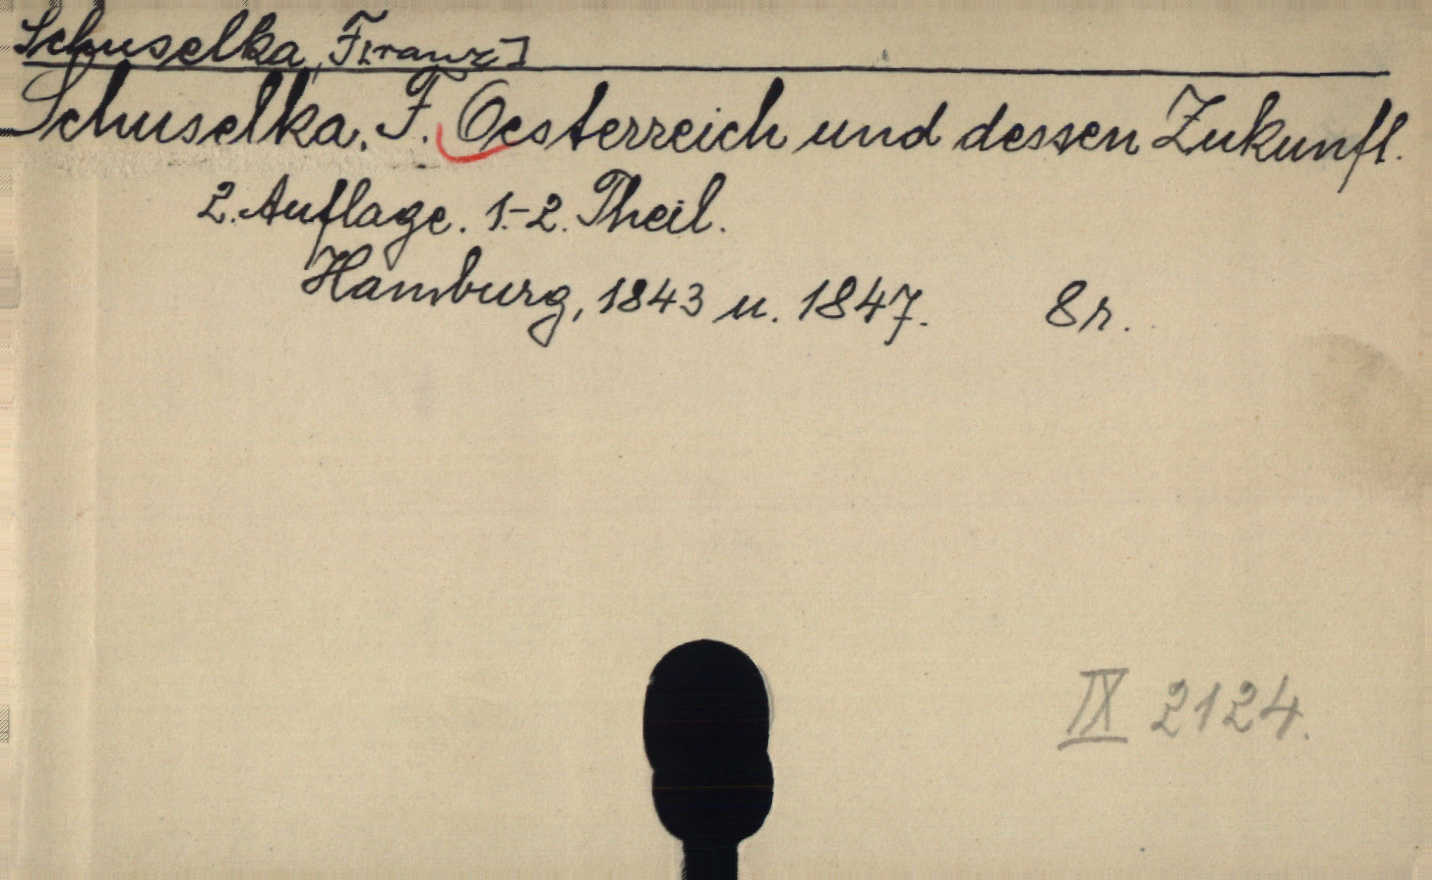 Schuselka, F[ranz]
Schuselka. F. Oesterreich und dessen Zukunft.
2. Auflage. 1.-2. Theil.
Hamburg, 1843 u. 1847. 8r.
IX 2124.